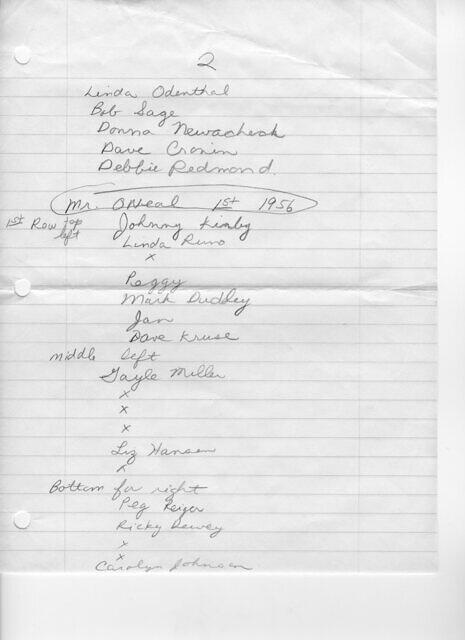 2
Linda Odenthal
Bob Sage
Donna Newacheck
Dave Cronin
Debbie Redmond.
Mr. ONeal 1st 1956
1st Row top left Johnny Kimby
Linda Runo
x
Peggy
Mark Dudley
Jan
Dave Kruse
middle left
Gayle Miller
x
x
x
Liz Hansen
x
Bottom far right
Peg Reiger
Ricky Dewey
x
x
Carolyn Johnson